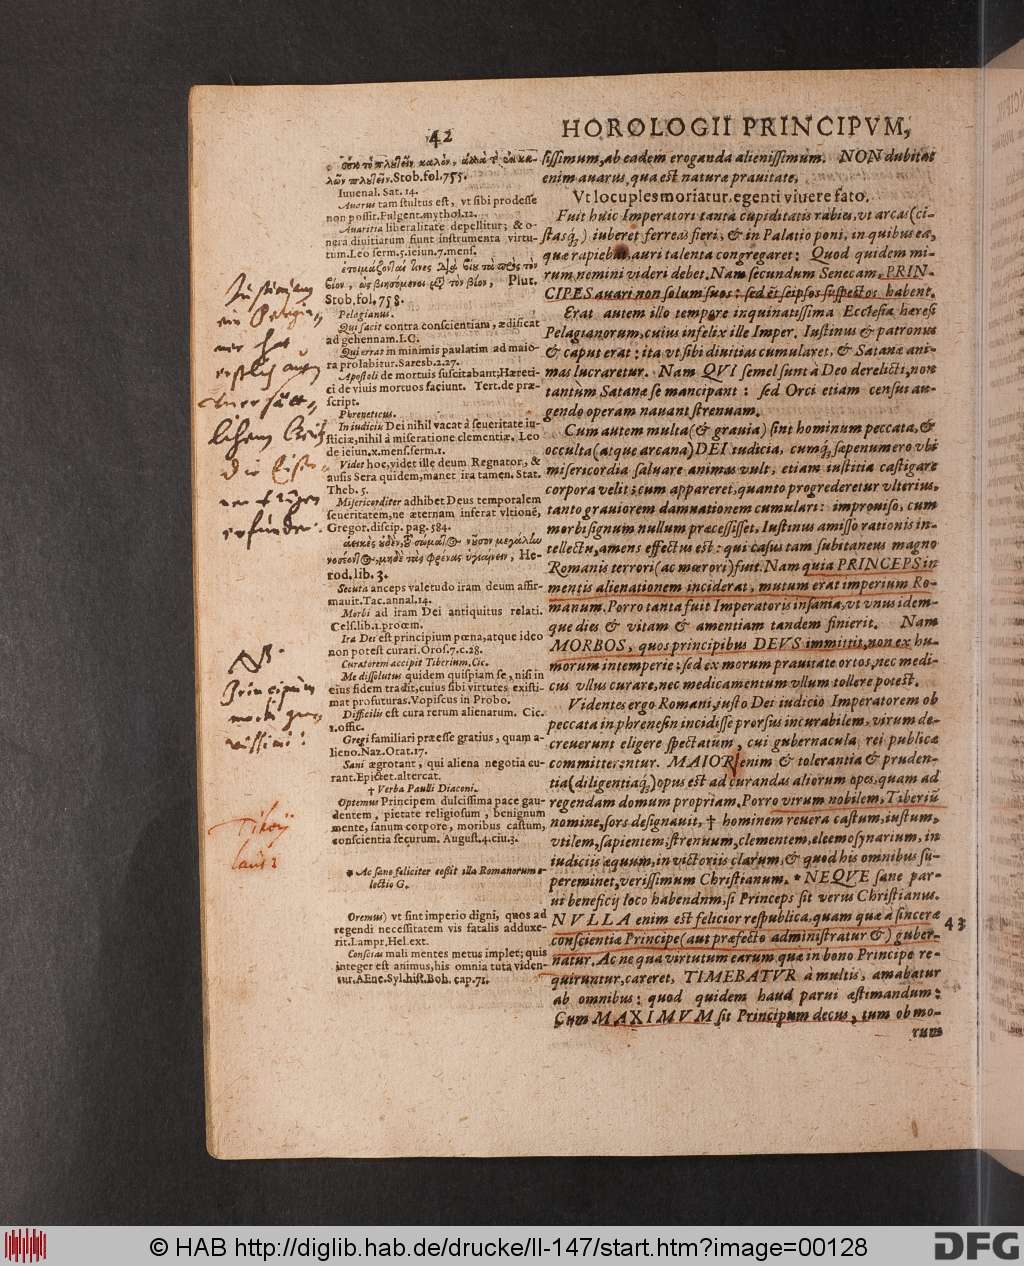 42
HOROLOGII PRINCIPVM,
lῶν πλουτεῖν. Stob. fol. 755.
Iuuenal. Sat. 14.
Auarus tam stultus est, vt sibi prodesse
non possit. Fulgent. mythol. 12.
Auaritia liberalitate depellitur; & o-
nera diuitiarum fiunt instrumenta virtu-
tum. Leo serm. 5. ieiun. 7. mens.
Plut.
Stob. fol. 758.
Pelagianus.
Qui facit contra conscientiam, ædificat
ad gehennam. I. C.
Qui errat in minimis paulatim ad maio-
ra prolabitur. Saresb. 2. 27.
Apostoli de mortuis suscitabant; Hæreti-
ci de viuis mortuos faciunt. Tert. de præ-
script.
Phreneticus.
In iudiciū Dei nihil vacat à seueritate iu-
sticiæ, nihil à miseratione clementiæ. Leo
de ieiun. x. mens. serm. 1.
Videt hoc, videt ille deum Regnator, &
ausis Sera quidem, manet ira tamen. Stat.
Theb. 5.
Misericorditer adhibet Deus temporalem
seueritatem, ne æternam inferat vltionē,
Gregor. discip. pag. 584.
He-
rod. lib. 3.
Secuta anceps valetudo iram deum affir-
mauit. Tac. annal. 14.
Morbi ad iram Dei antiquitus relati.
Cels. lib. 1. proœm.
Ira Dei est principium pœna, atque ideo
non potest curari. Oros. 7. c. 28.
Curatorem accipit Tiberium. Cic.
Me dissolutus quidem quispiam se, nisi in
eius fidem tradit, cuius sibi virtutes existi-
mat profuturas. Vopiscus in Probo.
Difficilis est cura rerum alienarum. Cic.
1. offic.
Gregi familiari præesse gratius, quam a-
lieno. Naz. Orat. 17.
Sani ægrotant, qui aliena negotia cu-
rant. Epictet. altercat.
† Verba Paulli Diaconi.
Optemus Principem dulcissima pace gau-
dentem, pietate religiosum, benignum
mente, sanum corpore, moribus castum,
conscientia securum. August. 4. ciu. 3.
* Ac sane feliciter cessit illa Romanorum e-
lectio G.
Oremus) vt sint imperio digni, quos ad
regendi necessitatem vis fatalis adduxe-
rit. Lampr. Hel. ext.
Conscias mali mentes metus implet; quis
integer est animus, his omnia tuta viden-
tur. AEne. Syl. hist. Boh. cap. 71.
sissimum, ab eadem eroganda alienissimum. NON dubitat
enim auarus, qua est naturæ prauitate,
Vt locuples moriatur, egenti viuere fato.
Fuit huic Imperatori tanta cupiditatis rabies, vt arcas (ci-
stasq́;) iuberet ferreas fieri, & in Palatio poni, in quibus ea,
quæ rapiebat, auri talenta congregaret: Quod quidem mi-
rum nemini videri debet. Nam secundum Senecam, PRIN-
CIPES auari non solum suos: sed et seipsos suspectos habent.
Erat autem illo tempore inquinatissima Ecclesia hæresi
Pelagianorum, cuius infelix ille Imper. Iustinus & patronus
& caput erat: ita vt sibi diuitias cumularet, & Satanæ ani-
mas lucraretur. Nam QVI semel sunt à Deo derelicti, non
tantùm Satanæ se mancipant: sed Orci etiam census au-
gendo operam nauant strenuam.
Cum autem multa (& grauia) sint hominum peccata, &
occulta (atque arcana) DEI iudicia, cumq́; sæpenumero vbi
misericordia saluare animas vult, etiam iustitia castigare
corpora velit: cum appareret, quanto progrederetur vlterius,
tanto grauiorem damnationem cumulari: improuiso, cum
morbi signum nullum præcessisset, Iustinus amisso rationis in-
tellectu, amens effectus est: qui casus tam subitaneus magno
Romanis terrori (ac mœrori) fuit. Nam quia PRINCEPS in
mentis alienationem inciderat, mutum erat imperium Ro-
manum. Porro tanta fuit Imperatoris insania, vt vnus idem-
que dies & vitam & amentiam tandem finierit. Nam
MORBOS, quos principibus DEVS immittit, non ex hu-
morum intemperie: sed ex morum prauitate ortos, nec medi-
cus vllus curare, nec medicamentum vllum tollere potest.
Videntes ergo Romani, iusto Dei iudicio Imperatorem ob
peccata in phrenesin incidisse prorsus incurabilem, virum de-
creuerunt eligere spectatum, cui gubernacula rei publicæ
committerentur. MAIORI enim & tolerantia & pruden-
tia (diligentiaq́;) opus est ad curandas aliorum opes, quam ad
regendam domum propriam. Porro virum nobilem, Tiberiū
nomine, sors designauit, † hominem reuera castum, iustum,
vtilem, sapientem, strenuum, clementem, eleemosynarium, in
iudiciis æquum, in victoriis clarum, & quod his omnibus su-
pereminet, verissimum Christianum. * NEQVE sane par-
ui beneficij loco habendum, si Princeps sit verus Christianus.
NVLLA enim est felicior respublica, quam quæ à sinceræ
conscientiæ Principe (aut præfecto administratur &) guber-
natur. Ac ne qua virtutum earum, quæ in bono Principe re-
quiruntur, careret, TIMEBATVR à multis, amabatur
ab omnibus: quod quidem haud parui æstimandum:
Cum MAXIMVM sit Principum decus, tum ob mo-
rum
43
Justinian
ein Pelagia-
ner hat
erstlich
die Eiser-
nen truhen
erfunden.
NB.
Principum
morbi gra-
vissimi:
Tiberij
laus
© HAB http://diglib.hab.de/drucke/li-147/start.htm?image=00128
DFG